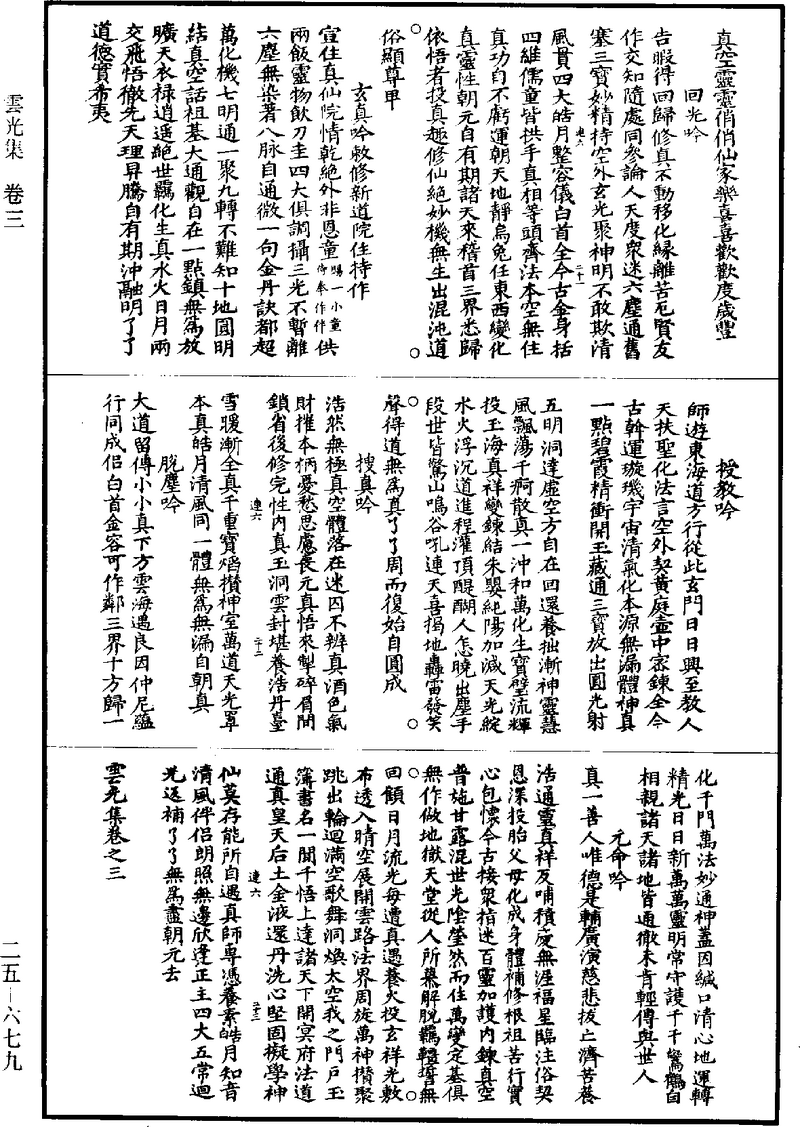 真空靈靈俏俏仙家樂喜喜歡歡度歲豐
回光吟
告暇得回歸修真不動移化緣離苦厄賢友
作交知隨處同參論人天度衆迷六塵通舊
塞三寶妙精持空外玄光聚神明不敢欺清
連六
二十一
風貫四大皓月整容儀白首全今古金身括
四維儒童皆拱手真相等頭齊法本空無住
真功自不虧運朝天地靜烏兔任東西變化
真靈性朝元自有期諸天來稽首三界悉歸
依悟者投真趣修仙絕妙機無生出混沌道
俗顯尊卑
玄真吟敕修新道院住持作
宣住真仙院情乾絕外非恩童賜一小童侍奉作伴供
兩飯靈物飲刀圭四大俱調攝三光不暫離
六塵無染著八脉自通微一句金丹訣都超
萬化機七明通一聚九轉不難知十地圓明
結真空話祖基大通觀自在一點鎮無爲放
曠天衣祿逍遥絕世羈化生真水火日月兩
交飛悟徹先天理昇騰自有期沖融明了了
道德實希夷
授教吟
師遊東海道方行從此玄門日日興至教人
天扶聖化法言空外契黄庭壺中宻鍊全今
古斡運璇璣宇宙清氣化本源無漏體神真
一點碧霞精衝開玉藏通三寶放出圓光射
五明洞達虛空方自在回還養拙漸神靈慧
風飄蕩千痾散真一沖和萬化生寶壁流輝
投玉海真祥變鍊結朱嬰純陽加減天光綻
水火浮沉道進程灌頂醍醐人怎曉出塵手
段世皆驚山鳴谷吼連天喜揭地轟雷發笑
聲得道無爲真了了周而復始自圓成
搜真吟
浩然無極真空體落在迷囚不辨真酒色氣
財摧本柄憂愁思慮喪元真悟來掣碎眉間
鎖省後修完性内真玉洞雲封堪養浩丹臺
連六
二十二
雪暖漸全真千重寶焰攢神室萬道天光罩
本真皓月清風同一體無爲無漏自朝真
脫塵吟
大道留傳小小真下方雲海遇良因仲尼蘊
行同成侣白首金容可作鄰三界十方歸一
化千門萬法妙通神蓋因緘口清心地運轉
精光日日新萬萬靈明常守護千千鸞鶴自
相親諸天諸地皆通徹未肯輕傳與世人
元命吟
真一善人唯德是輔廣演慈悲拔亡濟苦養
浩通靈真祥反哺積慶無涯福星臨注俗契
恩深投胎父母化成身體補修根祖苦行實
心包懷今古接衆指迷百靈加護内鍊真空
普施甘露混世光陰瑩然而住萬變定基俱
無作做地獄天堂從人所募解脫羈韁誓無
回顧日月流光每遭真遇養火投玄祥光敷
布透入晴空展開雲路法界周旋萬神攢聚
跳出輪迴滿空歌舞洞煥太空我之門戶玉
簿書名一聞千悟上達諸天下開冥府法道
通真皇天后土金液還丹洗心堅固擬學神
連六
二十三
仙莫存能所自遇真師專憑養素皓月知音
清風伴侣朗照無邊欣逢正主四大五常迴
光返補了了無爲盡朝元去
雲光集卷之三
雲光集 卷三
二五—六七九